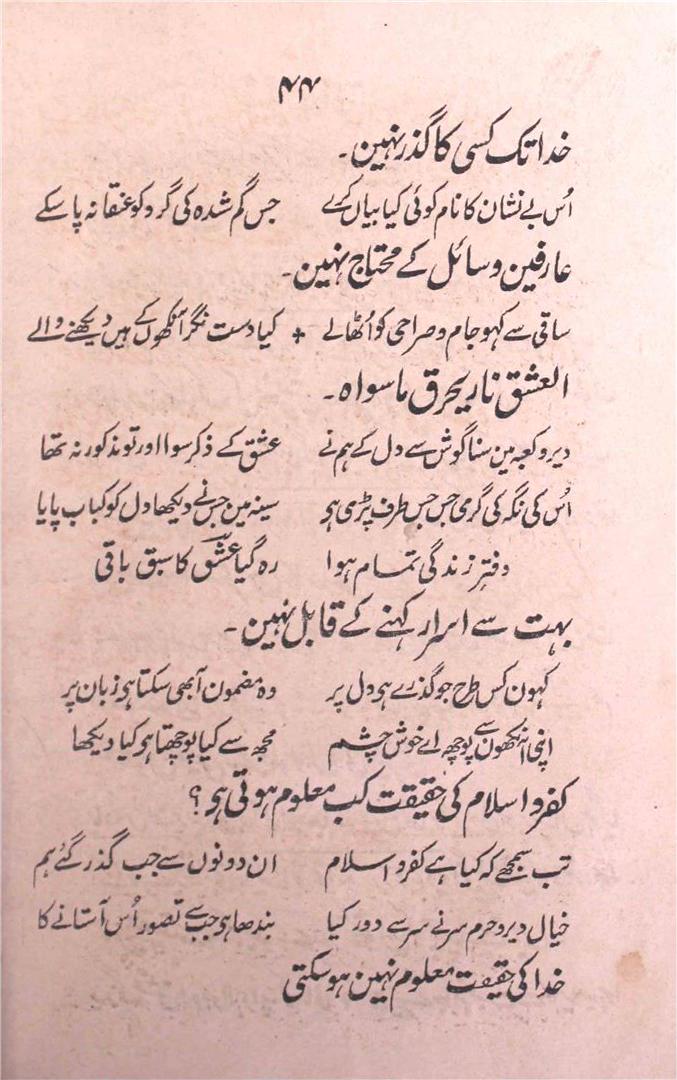 ۴۴
خدا تک کسی کا گذر نہین۔
اُس بے نشان کا نام کوئی کیا بیاں کرے جس گم شدہ کی گرد کو عنقا نہ پا سکے
عارفین وسائل کے محتاج نہین۔
ساقی سے کہو جام و صراحی کو اُٹھالے + کیا دست نگر آنکھوں کے ہیں دیکھنے والے
العشق نار یحرق ماسواہ۔
دیر و کعبہ مین سنا گوش سے دل کے ہم نے عشق کے ذکر سوا اور تو مذکور نہ تھا
اُس کی نگہ کی گرمی جس جس طرف پڑی ہی سینہ مین جس نے دیکھا دل کو کباب پایا
دفتر زندگی تمام ہوا رہ گیا عشق کا سبق باقی
بہت سے اسرار کہنے کے قابل نہین۔
کہون کس طرح جو گذرے ہی دل پر وہ مضمون آبھی سکتا ہی زبان پر
اپنی آنکھون سے پوچھ اے خوش چشم مجھ سے کیا پوچھتا ہی کیا دیکھا
کفر و اسلام کی حقیقت کب معلوم ہوتی ہی؟
تب سمجھے کہ کیا ہے کفر و اسلام ان دونوں سے جب گذر گئے ہم
خیال دیر و حرم سرنے سر سے دور کیا بندھا ہی جب سے تصور اُس آستانے کا
خدا کی حقیقت معلوم نہین ہو سکتی